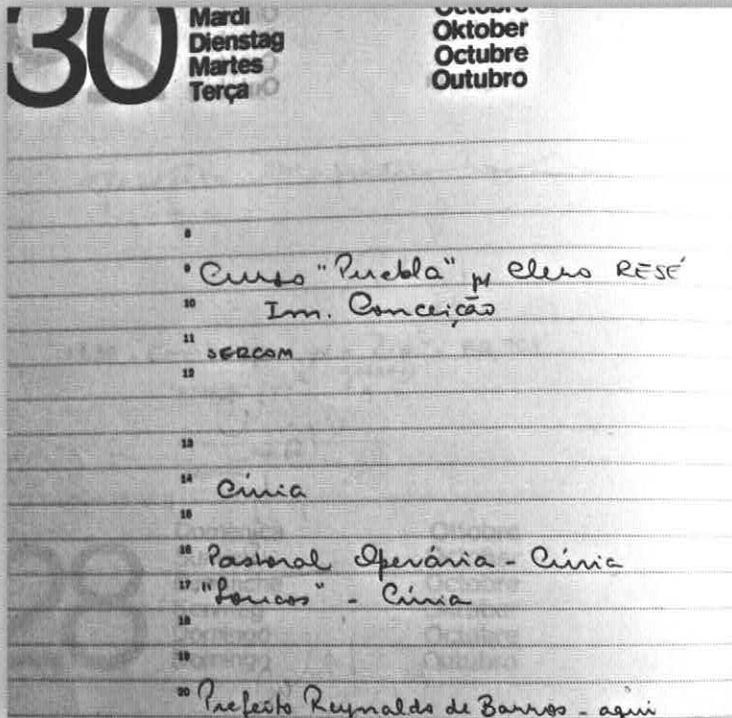 30
Mardi Octobre
Dienstag Oktober
Martes Octubre
Terça Outubro
8
9 Curso "Puebla" p/ Clero RESÉ
10 Im. Conceição
11 SERCOM
12
13
14 Cúria
15
16 Pastoral Operária - Cúria
17 "Loucos" - Cúria
18
19
20 Prefeito Reynaldo de Barros - aqui